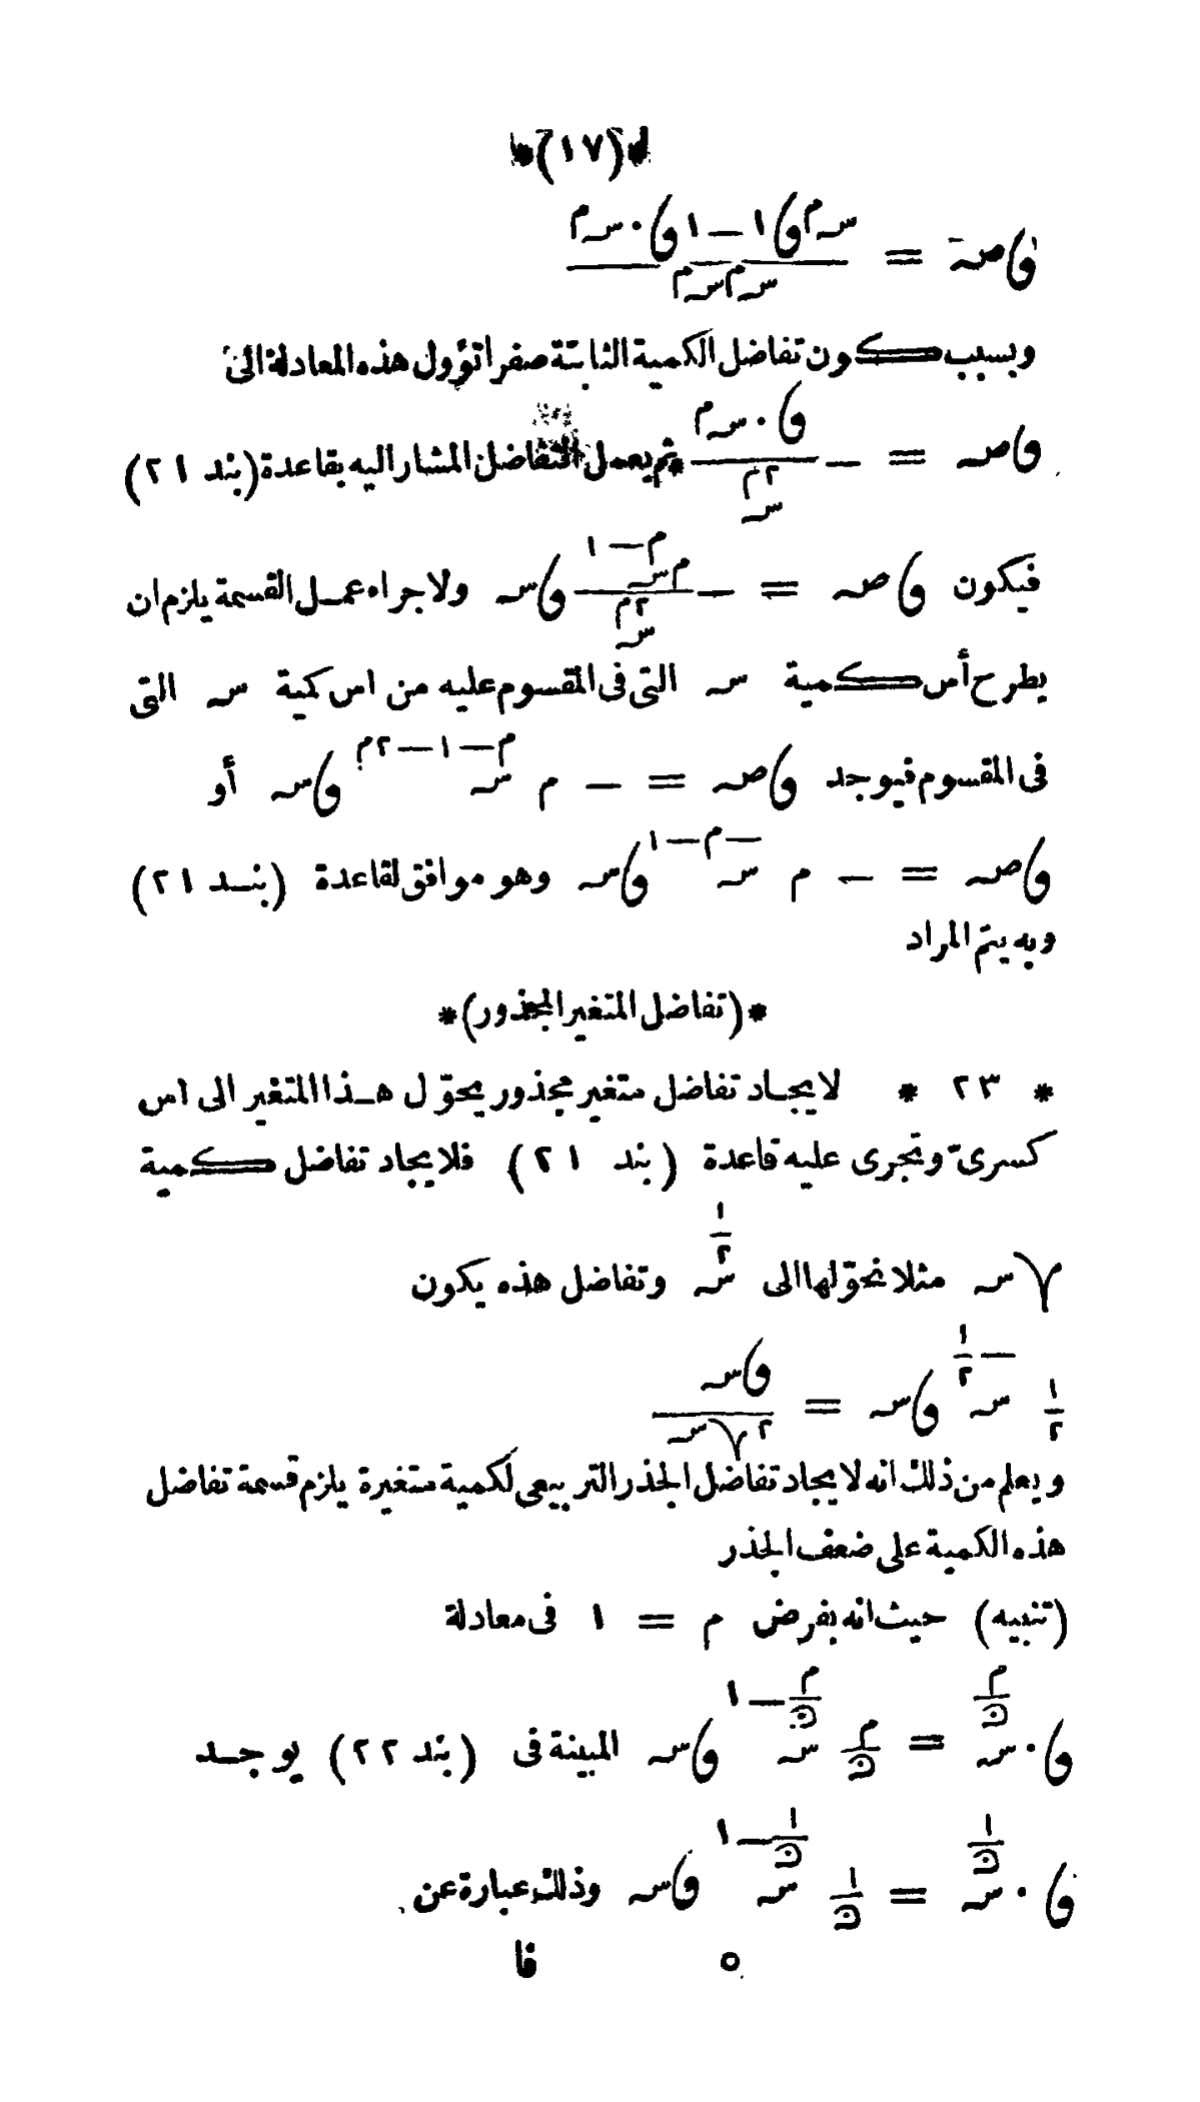 *(١٧)*
ڡاصہ = (سہ^م ڡا١ − ١ڡا٠سہ^م) / (سہ^م سہ^م)
وبسبب كون تفاضل الكمية الثابتة صفرا تؤول هذه المعادلة الى
ڡاصہ = − (ڡا٠سہ^م) / (سہ^٢م) ثم يعمل التفاضل المشار اليه بقاعدة (بند ٢١)
فيكون ڡاصہ = − (م سہ^(م−١)) / (سہ^٢م) ڡاسہ ولاجراء عمل القسمة يلزم ان
يطرح أس كمية سہ التى فى المقسوم عليه من اس كمية سہ التى
فى المقسوم فيوجد ڡاصہ = − م سہ^(م−١−٢م) ڡاسہ أو
ڡاصہ = − م سہ^(−م−١) ڡاسہ وهو موافق لقاعدة (بند ٢١)
وبه يتم المراد
*(تفاضل المتغير المجذور)*
* ٢٣ * لايجاد تفاضل متغير مجذور يحوّل هذا المتغير الى اس
كسرىّ وتجرى عليه قاعدة (بند ٢١) فلايجاد تفاضل كمية
√سہ مثلا نحوّلها الى سہ^(١/٢) وتفاضل هذه يكون
١/٢ سہ^(−١/٢) ڡاسہ = ڡاسہ / ٢√سہ
ويعلم من ذلك انه لايجاد تفاضل الجذر التربيعى لكمية متغيرة يلزم قسمة تفاضل
هذه الكمية على ضعف الجذر
(تنبيه) حيث انه بفرض م = ١ فى معادلة
ڡا٠سہ^(م/ن) = م/ن سہ^(م/ن−١) ڡاسہ المبينة فى (بند ٢٢) يوجد
ڡا٠سہ^(١/ن) = ١/ن سہ^(١/ن−١) ڡاسہ وذلك عبارة عن
٥ فا